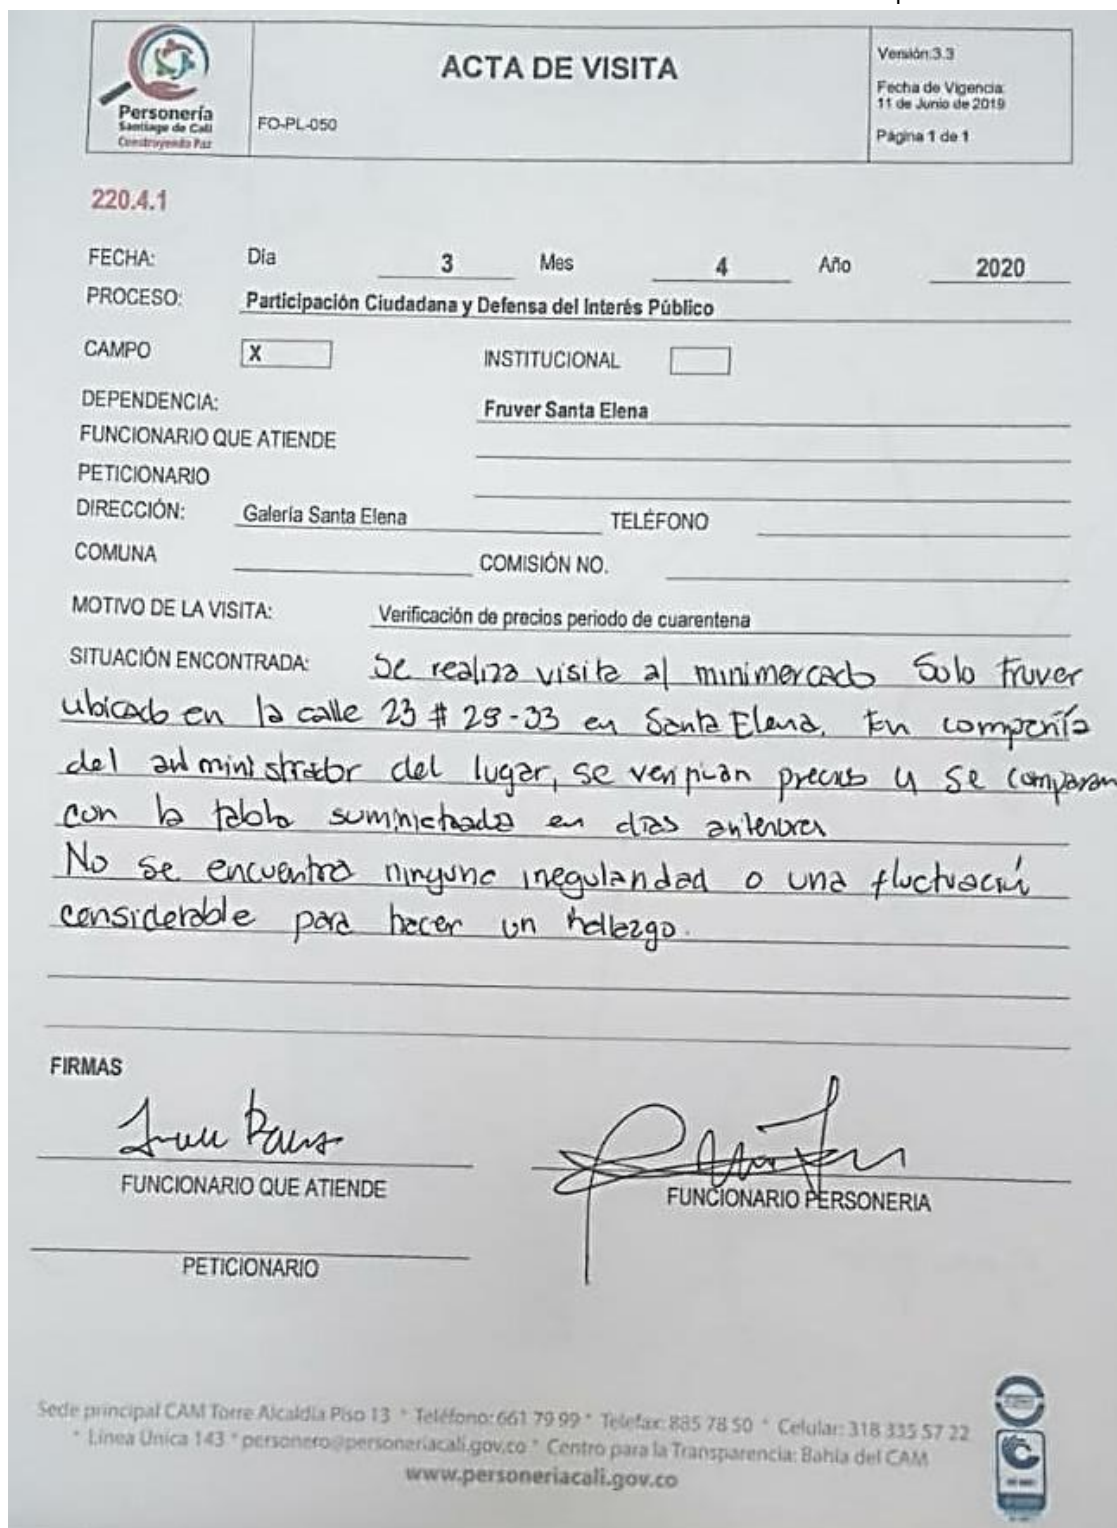 Personería
Santiago de Cali
Construyendo Paz
FO-PL-050
ACTA DE VISITA
Versión:3.3
Fecha de Vigencia:
11 de Junio de 2019
Página 1 de 1
220.4.1
FECHA: Día 3 Mes 4 Año 2020
PROCESO: Participación Ciudadana y Defensa del Interés Público
CAMPO X INSTITUCIONAL
DEPENDENCIA: Fruver Santa Elena
FUNCIONARIO QUE ATIENDE
PETICIONARIO
DIRECCIÓN: Galería Santa Elena TELÉFONO
COMUNA COMISIÓN NO.
MOTIVO DE LA VISITA: Verificación de precios periodo de cuarentena
SITUACIÓN ENCONTRADA: Se realiza visita al minimercado Solo Fruver
ubicado en la calle 23 # 29-33 en Santa Elena. En compañía
del administrador del lugar, se verifican precios y se comparan
con la tabla suministrada en días anteriores
No se encuentra ninguna irregularidad o una fluctuación
considerable para hacer un hallazgo.
FIRMAS
FUNCIONARIO QUE ATIENDE
FUNCIONARIO PERSONERIA
PETICIONARIO
Sede principal CAM Torre Alcaldía Piso 13 * Teléfono: 661 79 99 * Telefax: 885 78 50 * Celular: 318 335 57 22
* Línea Única 143 * personero@personeriacali.gov.co * Centro para la Transparencia: Bahía del CAM
www.personeriacali.gov.co